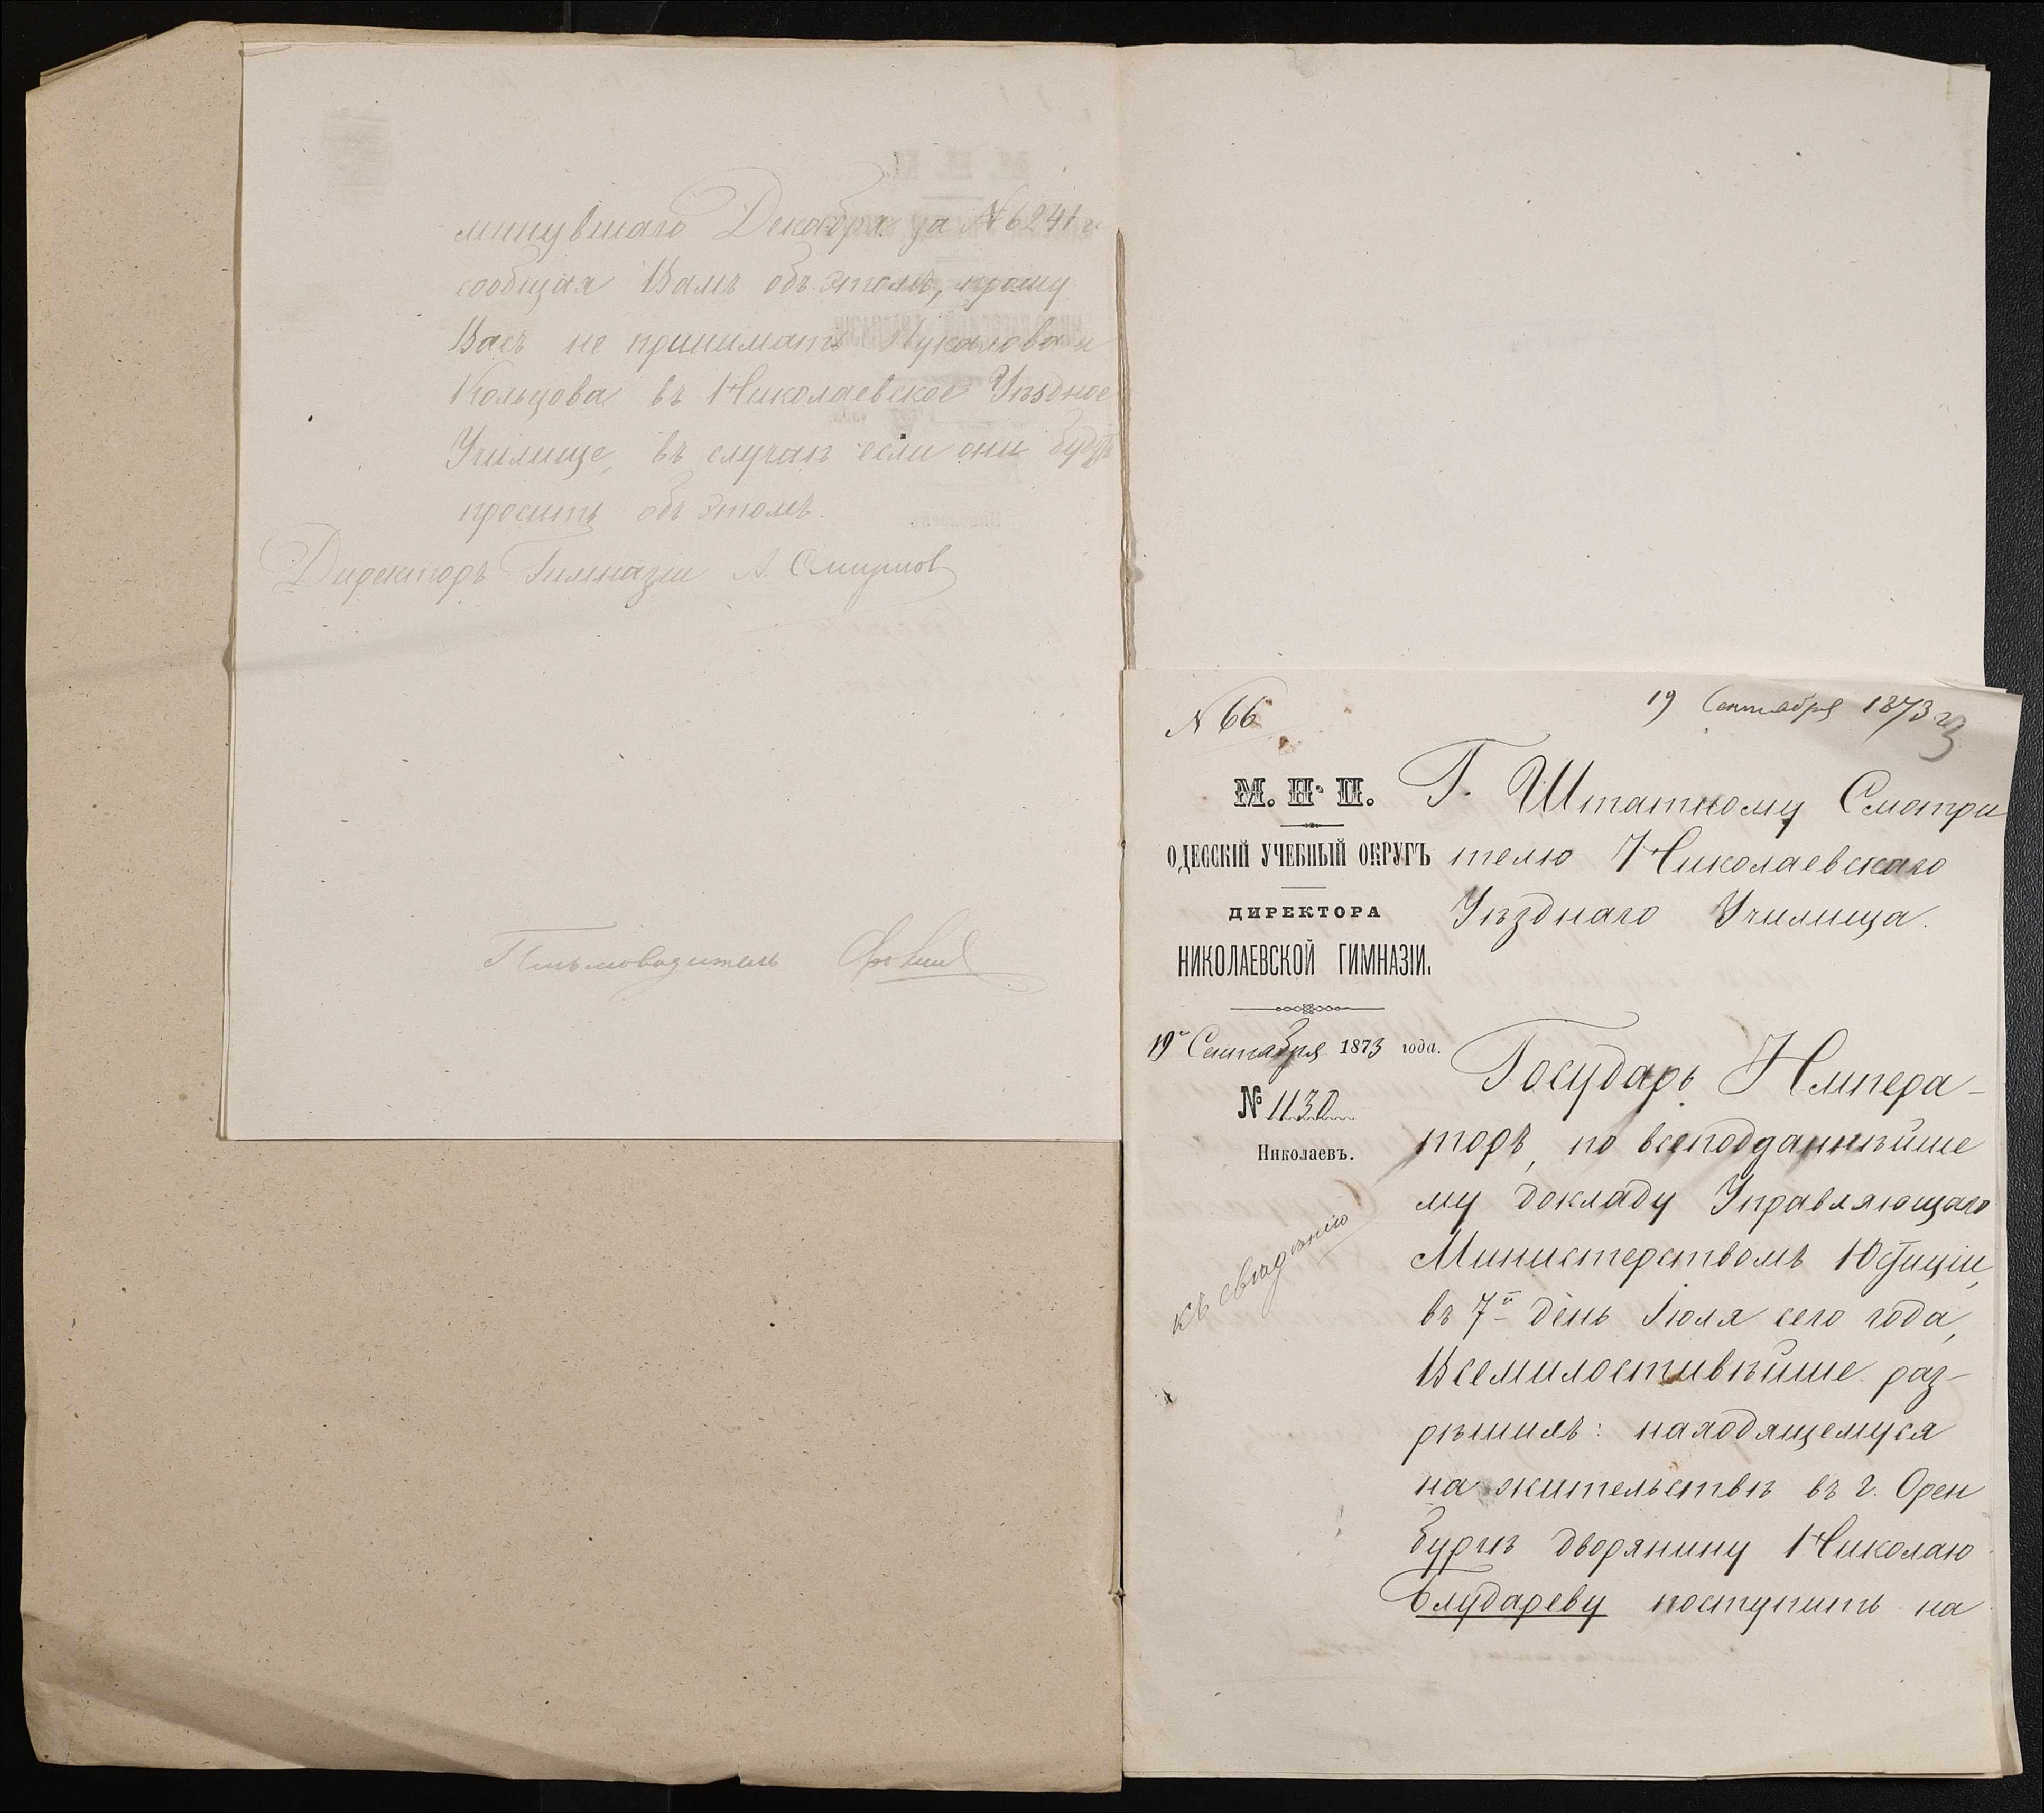 минувшаго Декабря за № 6241 и
сообщая Вамъ объ этомъ, прошу
Васъ не принимать Пукалова и
Кольцова въ Николаевское Уѣздное
Училище, въ случаѣ если они будутъ
просить объ этомъ.
Директоръ Гимназіи А. Смирнов
Письмоводитель
№ 66
19 Сентября 1873 г.
3
М. Н. П.
ОДЕССКІЙ УЧЕБНЫЙ ОКРУГЪ
ДИРЕКТОРА
НИКОЛАЕВСКОЙ ГИМНАЗІИ.
19 Сентября 1873 года.
№ 1130
Николаевъ.
къ свѣдѣнію
Г. Штатному Смотри
телю Николаевскаго
Уѣзднаго Училища.
Государь Импера-
торъ, по всеподданнѣйше
му докладу Управляющаго
Министерствомъ Юстиціи,
въ 7й день Іюля сего года,
Всемилостивѣйше раз-
рѣшилъ: находящемуся
на жительствѣ въ г. Орен
бургѣ дворянину Николаю
Блудареву поступить на